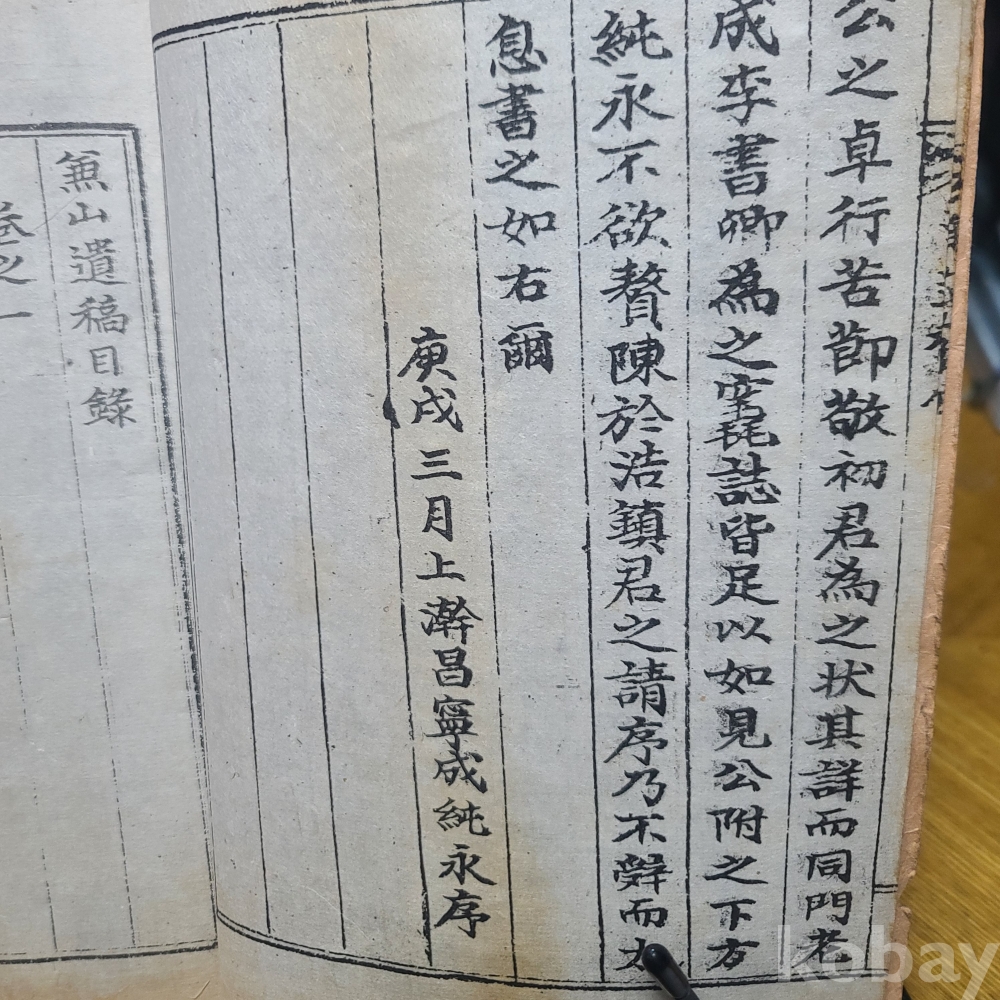 公之卓行苦節敬初君爲之状其詳而同門老
成李書卿爲之窀誌皆足以如見公附之下方
純永不欲贅陳於浩鎮君之請序乃不辭而太
息書之如右爾
庚戌三月上澣昌寧成純永序
無山遺稿目錄
卷之一
kobay